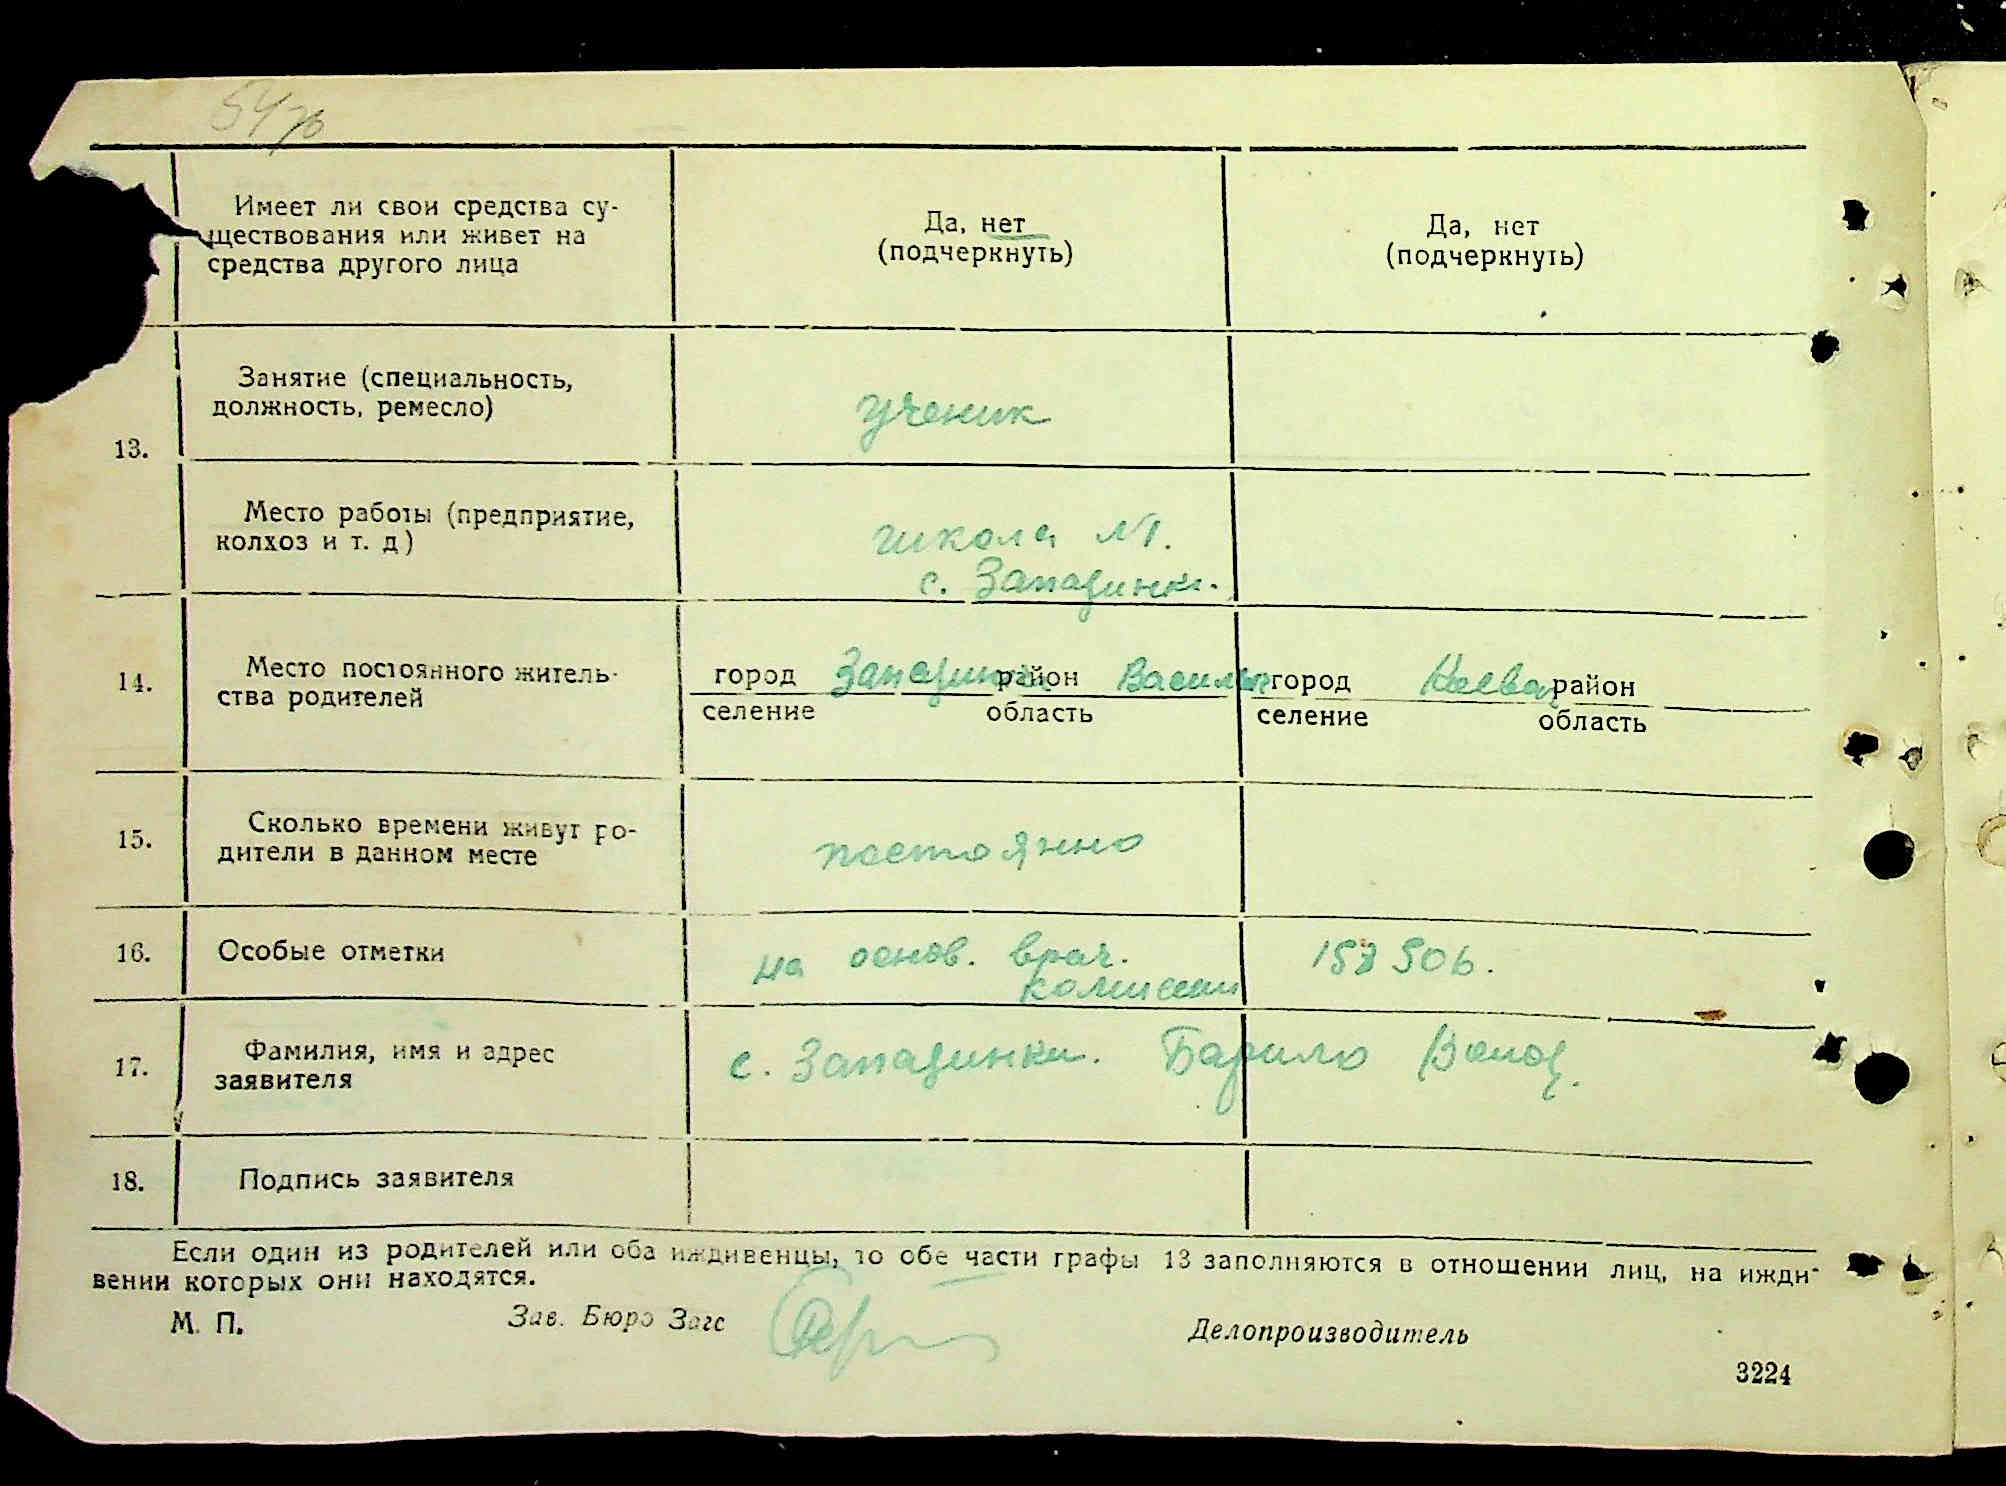 Имеет ли свои средства су-
ществования или живет на
средства другого лица
Да, нет
(подчеркнуть)
Да, нет
(подчеркнуть)
13.
Занятие (специальность,
должность, ремесло)
ученик
Место работы (предприятие,
колхоз и т. д)
школа №1.
с. Западинки.
14.
Место постоянного житель-
ства родителей
город Западинки район Васильк
селение область
город Киевск район
селение область
15.
Сколько времени живут ро-
дители в данном месте
постоянно
16.
Особые отметки
на основ. врач.
комиссии
17.
Фамилия, имя и адрес
заявителя
с. Западинки. Барило Волод.
18.
Подпись заявителя
Если один из родителей или оба иждивенцы, то обе части графы 13 заполняются в отношении лиц, на ижди-
вении которых они находятся.
М. П.
Зав. Бюро Загс
Делопроизводитель
3224